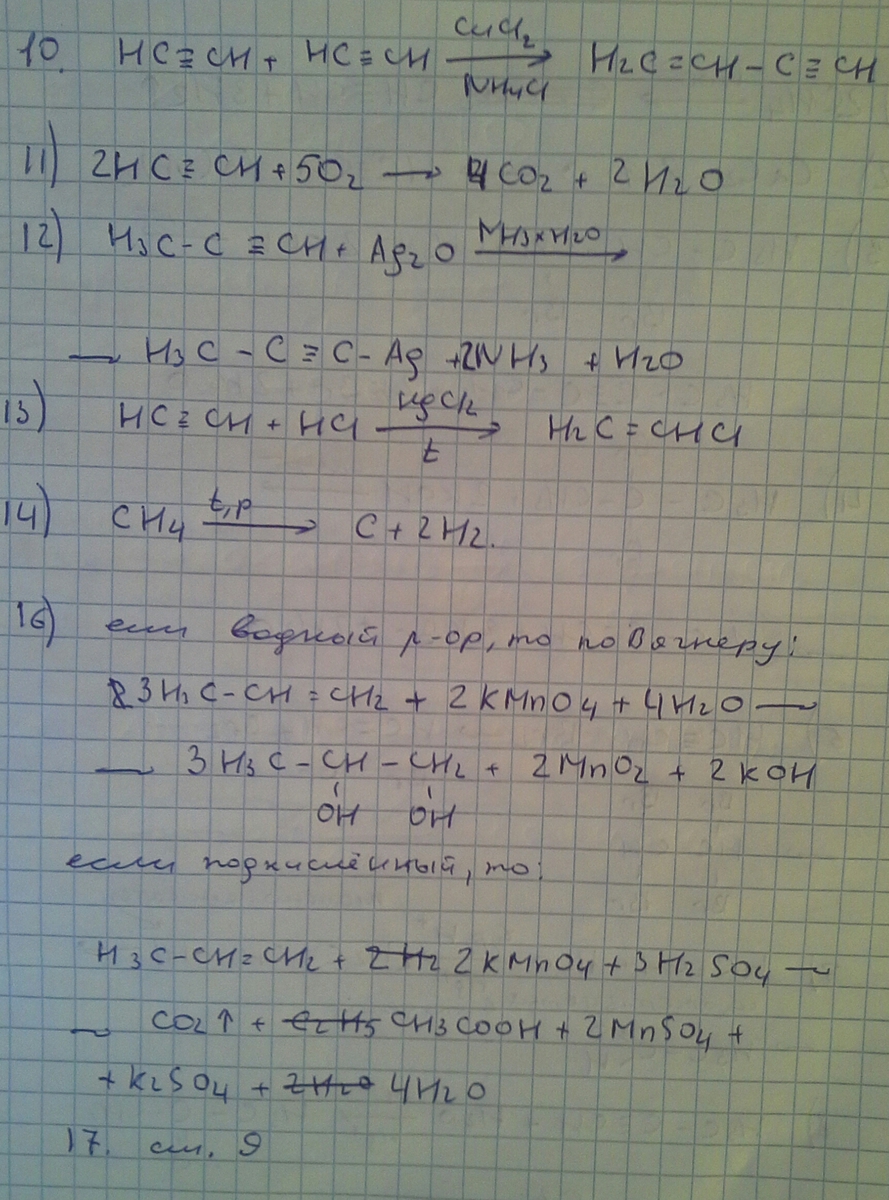 10. HC≡CH + HC≡CH CuCl2 NH4Cl → H2C=CH-C≡CH
11) 2HC≡CH + 5O2 → 4CO2 + 2H2O
12) H3C-C≡CH + Ag2O NH3×H2O →
→ H3C-C≡C-Ag + 2NH3 + H2O
13) HC≡CH + HCl HgCl2 t → H2C=CHCl
14) CH4 t,p → C + 2H2.
16) если водный р-ор, то по Вагнеру:
3H3C-CH=CH2 + 2KMnO4 + 4H2O →
→ 3H3C-CH-CH2 + 2MnO2 + 2KOH
OH OH
если подкислённый, то:
H3C-CH=CH2 + 2H2 2KMnO4 + 3H2SO4 →
→ CO2↑ + C2H5 CH3COOH + 2MnSO4 +
+ K2SO4 + 2H2O 4H2O
17. см. 9